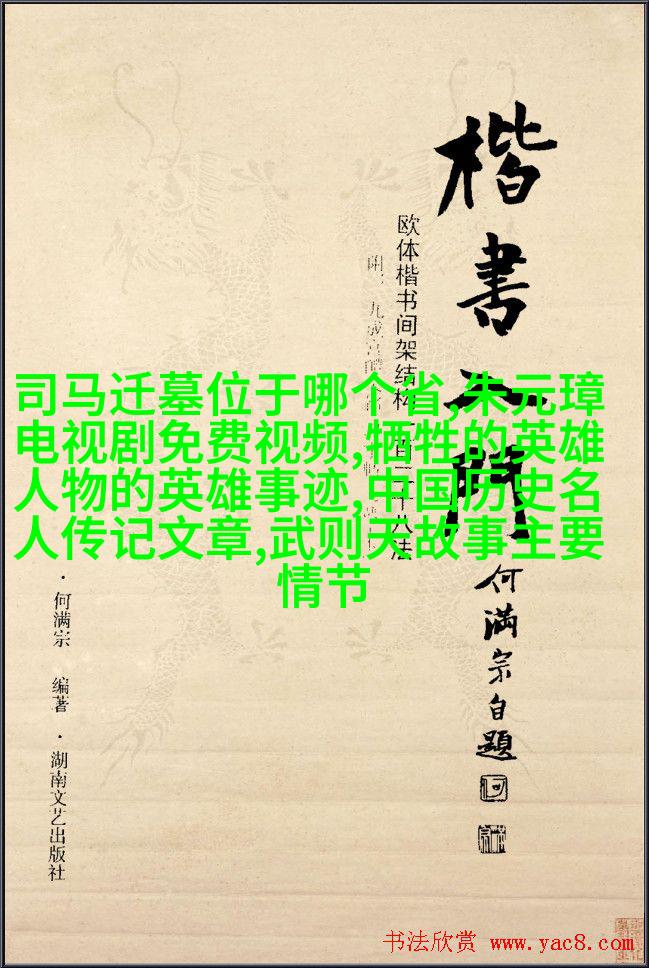 楷書入門
何滿宗自題
欧体楷书间架结构一百二十八法
司马迁墓位于哪个省,朱元璋
电视剧免费视频,牺牲的英雄
人物的英雄事迹,中国历史名
人传记文章,武则天故事主要
情节
·何满宗 编著·湖南文艺出版社
书法欣赏 www.yac8.com